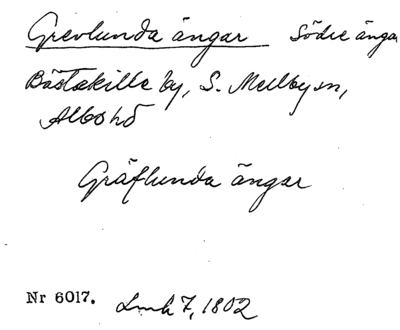 Grevlunda ängar Södre änga
Bästekille by, S. Mellby sn,
Albo hd
Gräflunda ängar
Nr 6017. Lmk 7, 1802